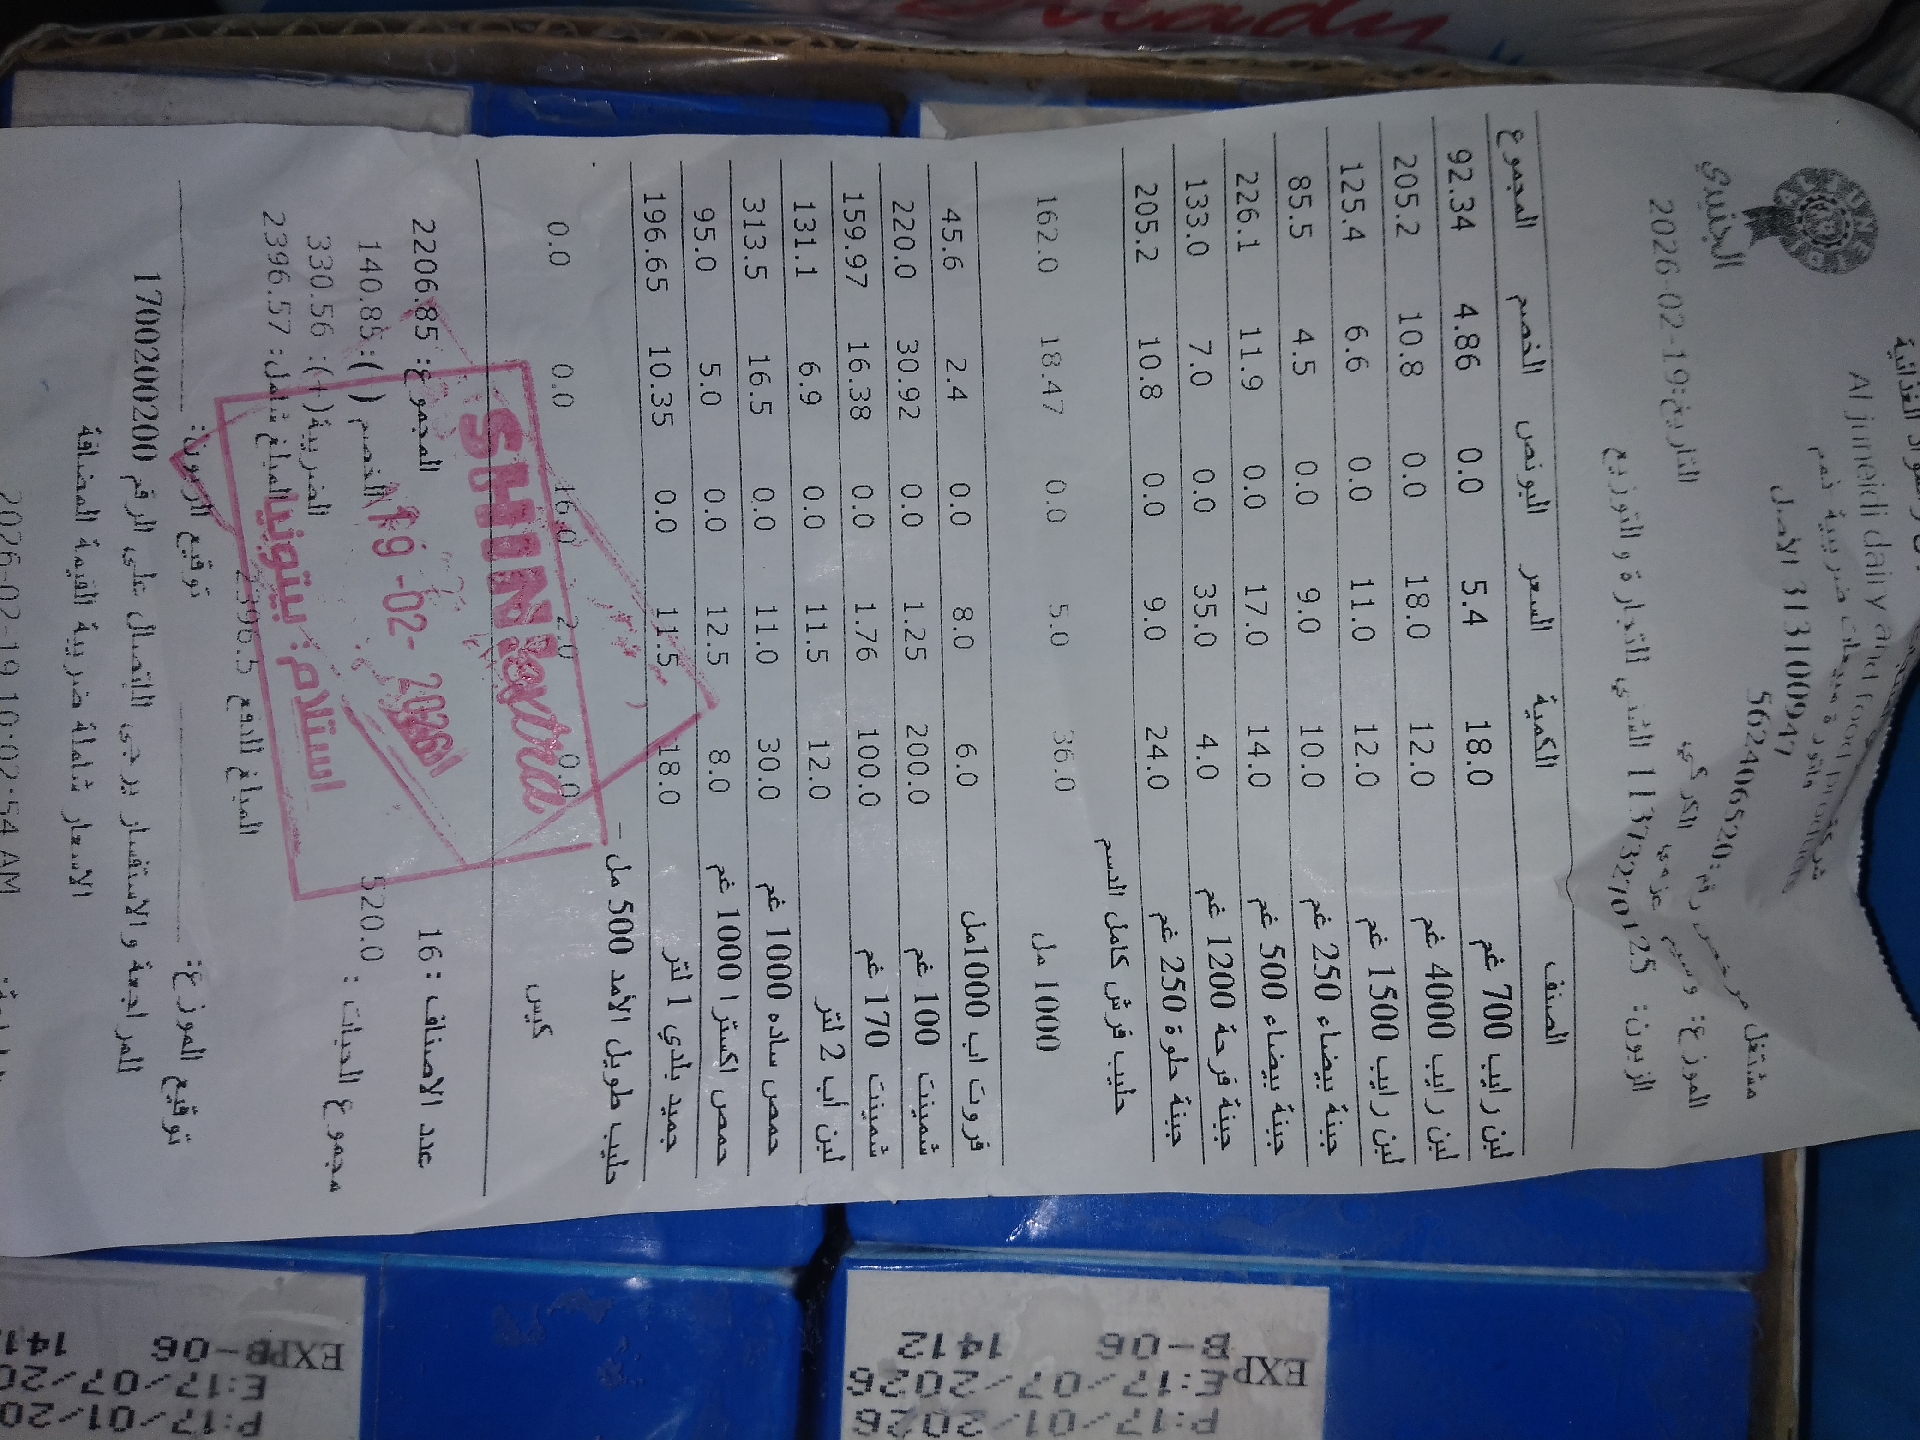 Al juneidi dairy and food products
فاتورة مبيعات ضريبية ذمم
313100947 الاصل
الجنيدي
مشتغل مرخص رقم: 562406520
الموزع: وسيم عزمي الكركي
التاريخ: 2026-02-19
الزبون: 11373270125 الشني التجارة و التوزيع
الصنف الكمية السعر البونص الخصم المجموع
لبن رايب 700 غم 18.0 5.4 0.0 4.86 92.34
لبن رايب 4000 غم 12.0 18.0 0.0 10.8 205.2
لبن رايب 1500 غم 12.0 11.0 0.0 6.6 125.4
جبنة بيضاء 250 غم 10.0 9.0 0.0 4.5 85.5
جبنة بيضاء 500 غم 14.0 17.0 0.0 11.9 226.1
جبنة فرحة 1200 غم 4.0 35.0 0.0 7.0 133.0
جبنة حلوة 250 غم 24.0 9.0 0.0 10.8 205.2
حليب فرش كامل الدسم
1000 مل 36.0 5.0 0.0 18.47 162.0
فروت اب 1000مل 6.0 8.0 0.0 2.4 45.6
شمينت 100 غم 200.0 1.25 0.0 30.92 220.0
شمينت 170 غم 100.0 1.76 0.0 16.38 159.97
لبن أب 2 لتر 12.0 11.5 0.0 6.9 131.1
حمص ساده 1000 غم 30.0 11.0 0.0 16.5 313.5
حمص اكسترا 1000 غم 8.0 12.5 0.0 5.0 95.0
جميد بلدي 1 لتر 18.0 11.5 0.0 10.35 196.65
حليب طويل الأمد 500 مل -
كيس 0.0 2.0 16.0 0.0 0.0
SHINI extra
19 -02- 2026
استلام: بيتونيا
عدد الاصناف : 16 المجموع: 2206.85
مجموع الحبات : 520.0 الخصم ( ): 140.85
الضريبة(+): 330.56
المبلغ شامل: 2396.57
المبلغ المدفوع 2396.5
توقيع الموزع: توقيع الزبون:
للمراجعة و الاستفسار يرجى الاتصال على الرقم 1700200200
الاسعار شاملة ضريبة القيمة المضافة
2026-02-19 10:02:54 AM
EXP
P:17/01/2026
E:17/07/2026
B-06 1412
EXP
P:17/01/20
E:17/07/20
B-06 141